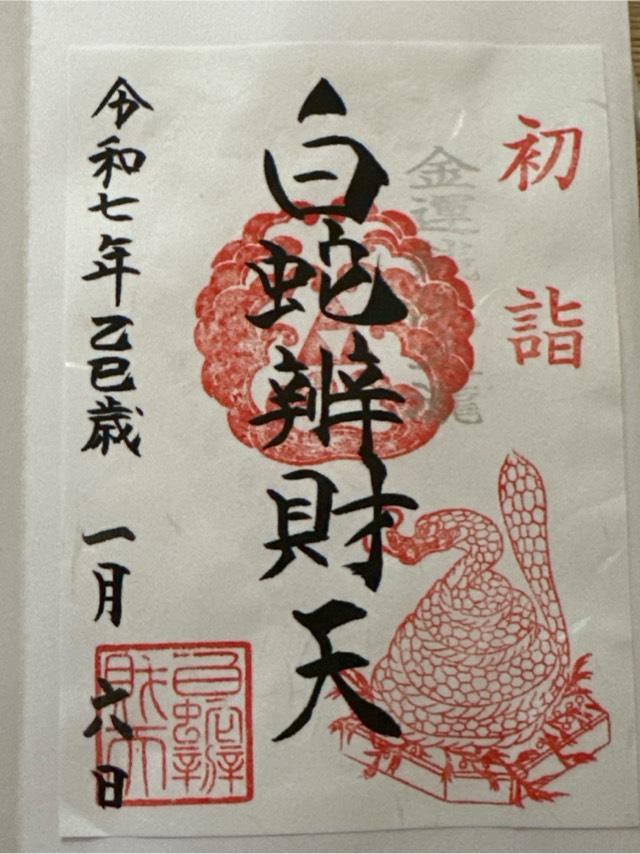 初詣
金運
白蛇辨財天
令和七年乙巳歳 一月 六日
白蛇辨
財天